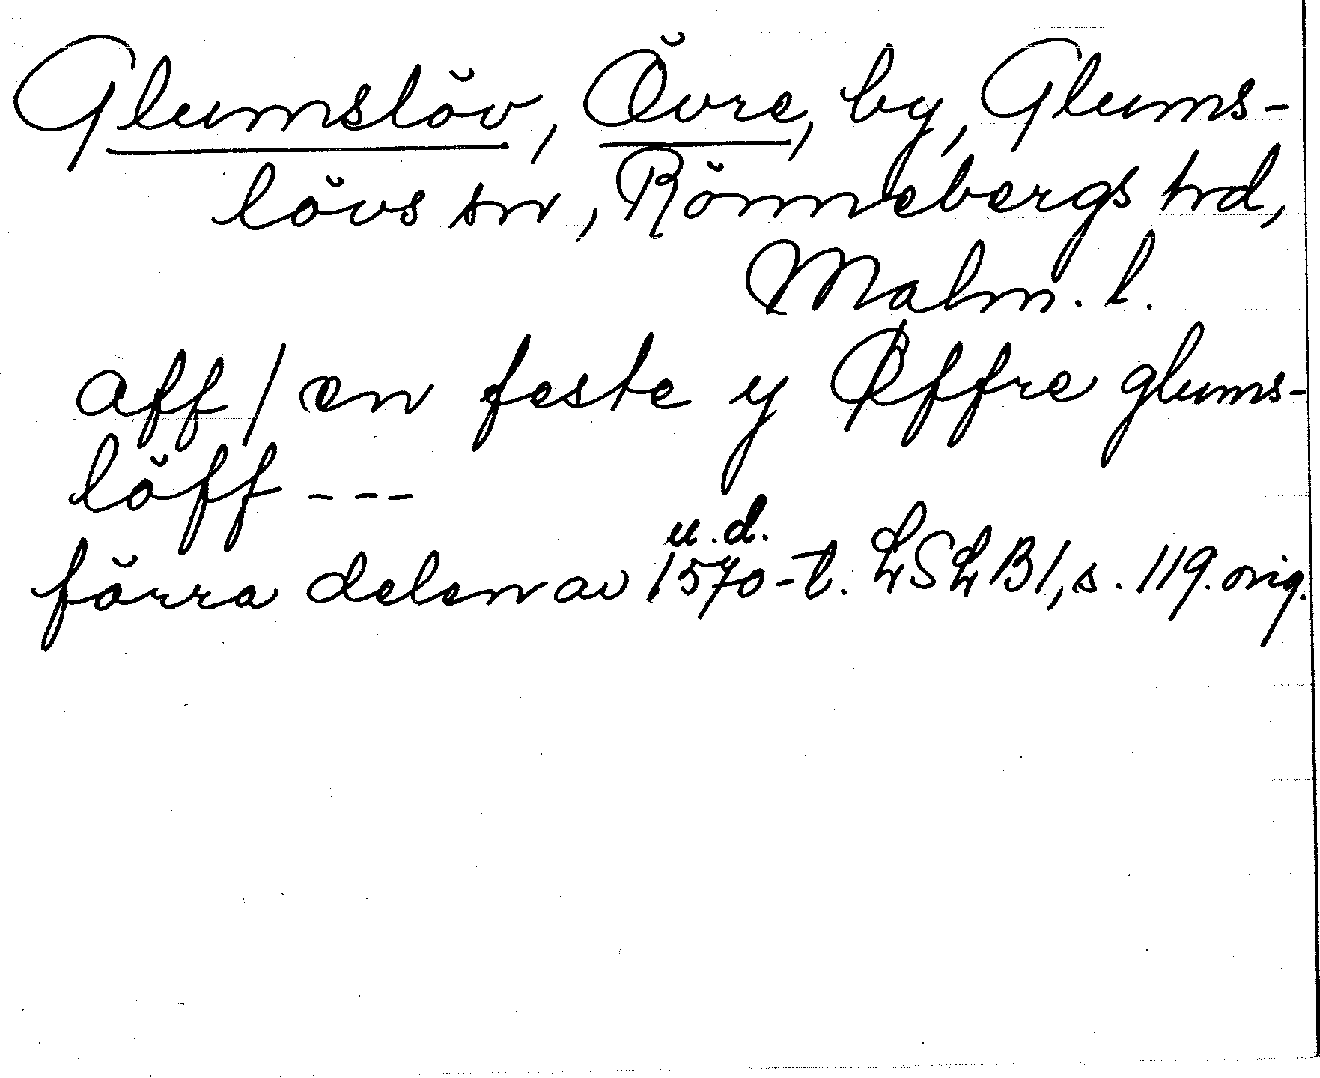 Glumslöv, Övre, by, Glums-
lövs sn, Rönnebergs hrd,
Malm. l.
aff / en feste y Øffre glums-
löff ---
u. d.
förra delen av 1570-t. LSLB1, s. 119. orig.